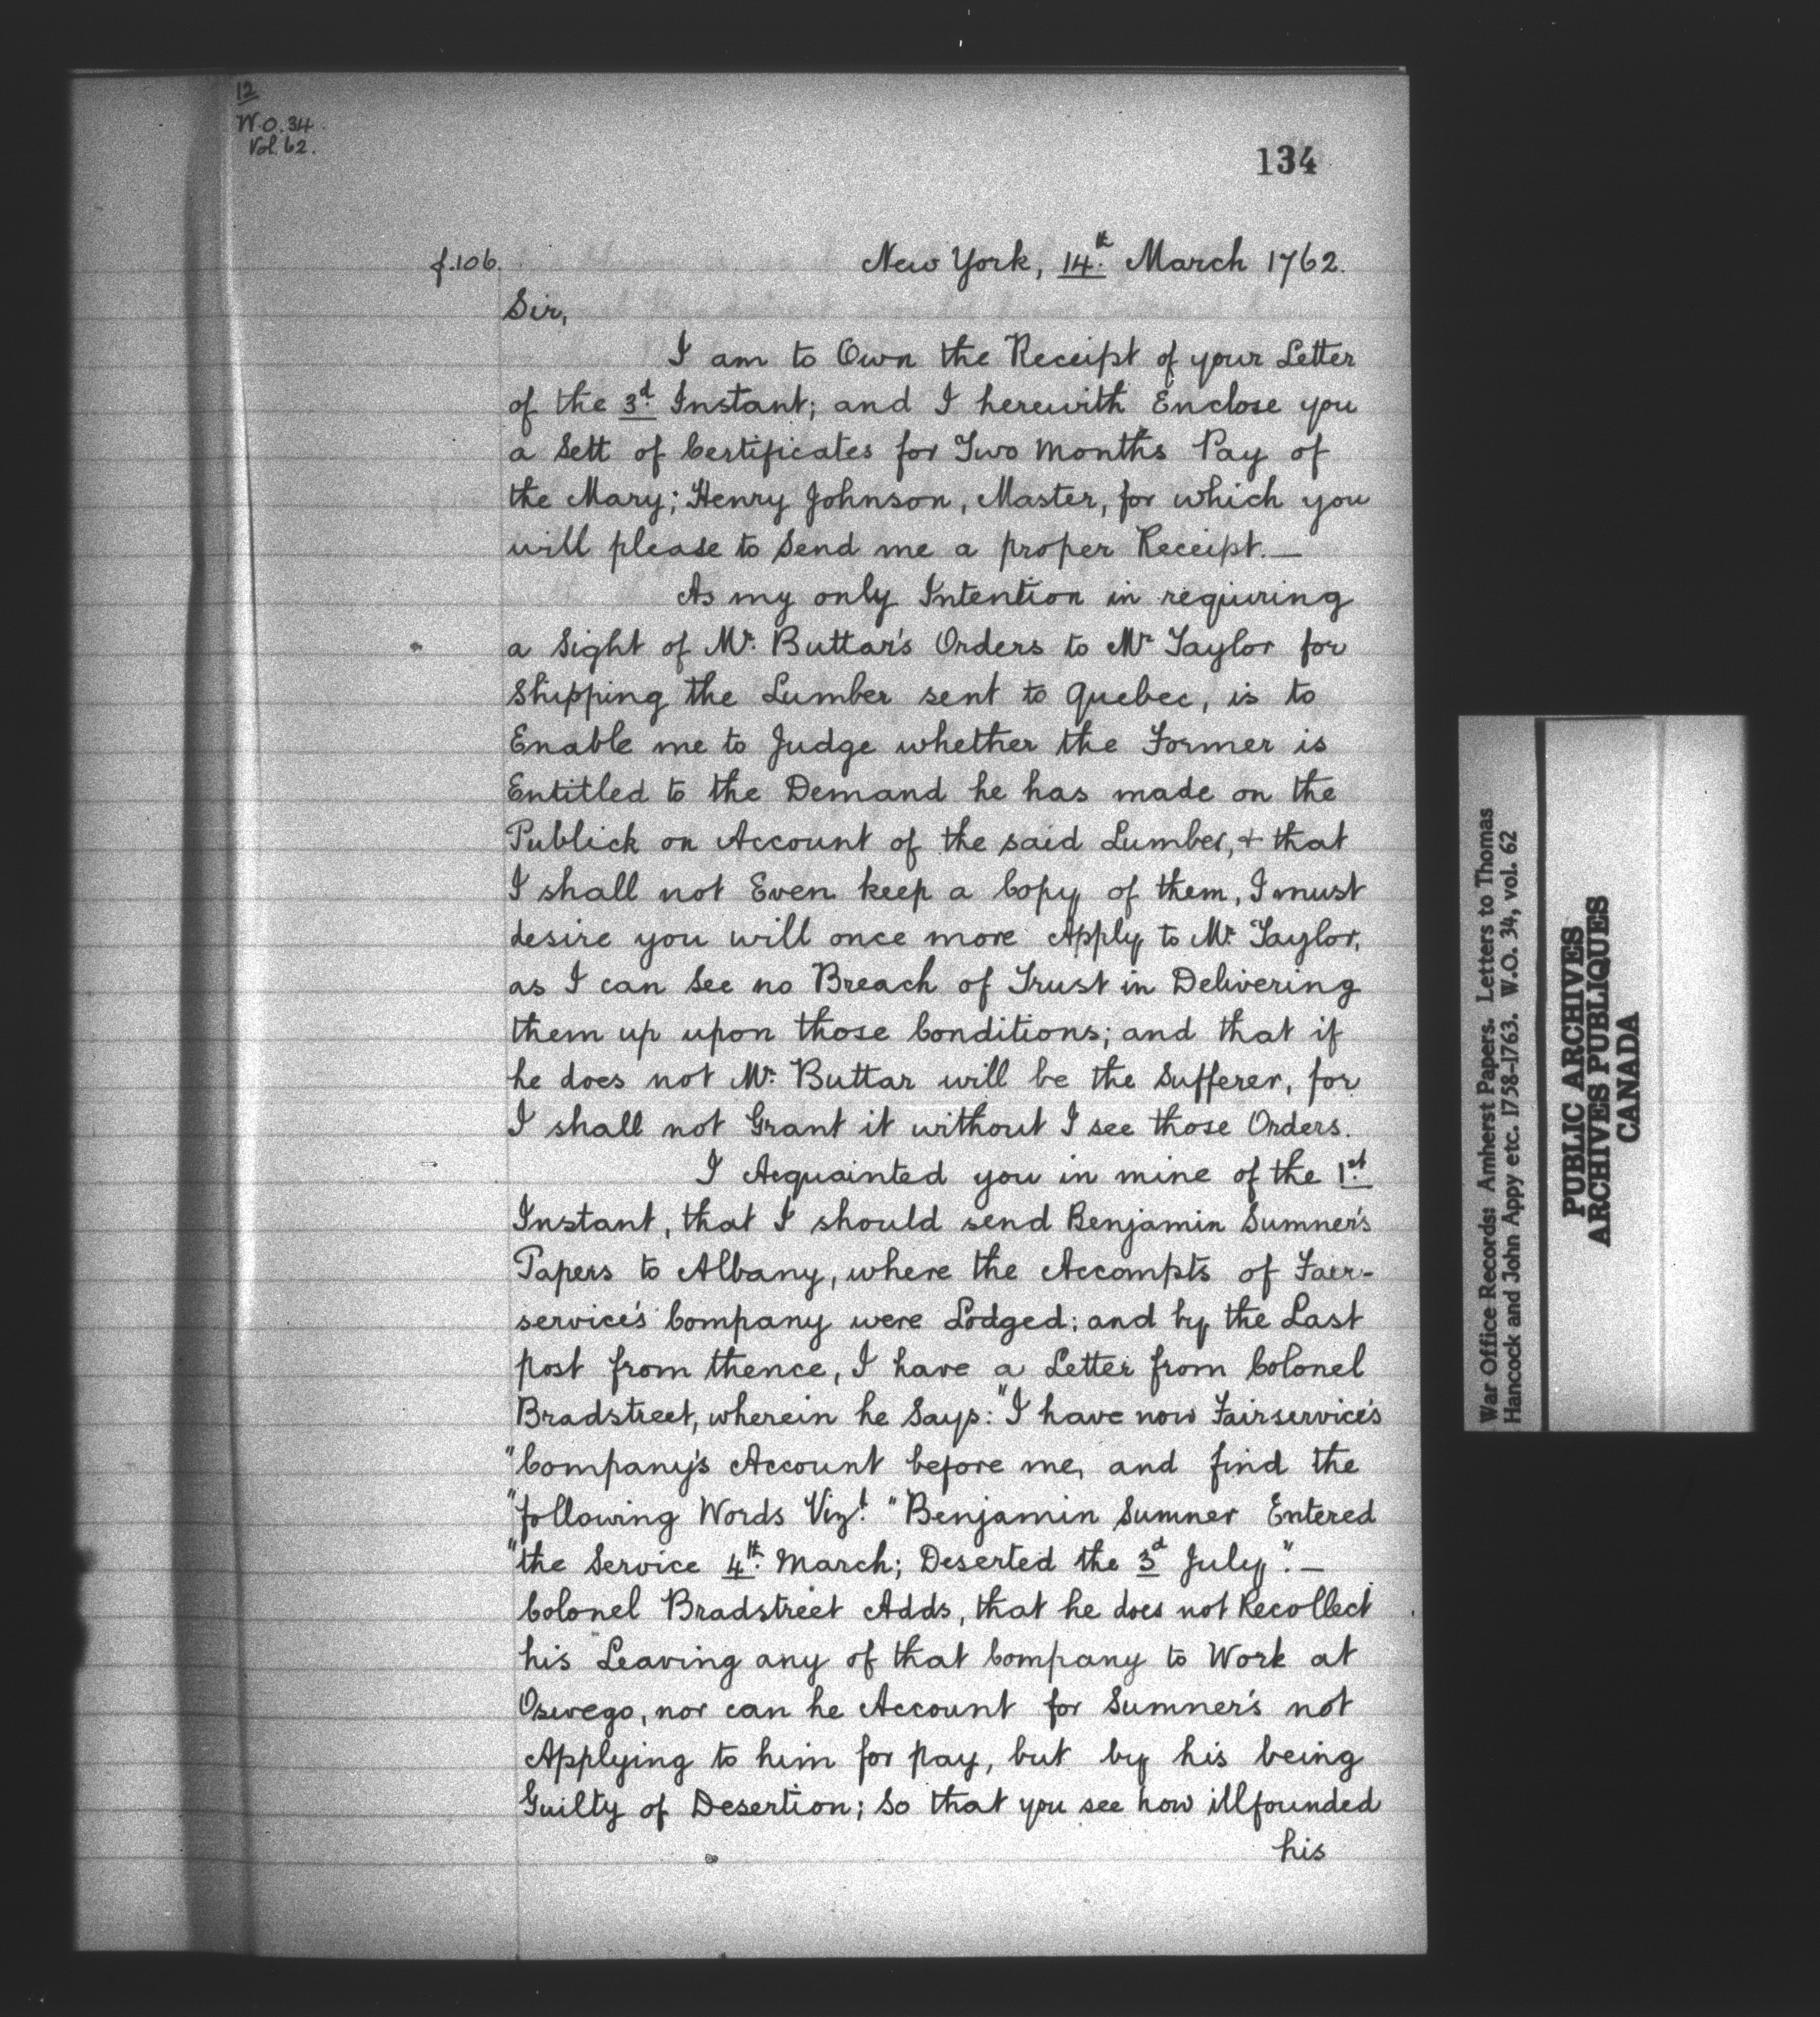 12
W.O. 34.
Vol. 62.
134
f.106.
New York, 14th. March 1762.
Sir,
I am to Own the Receipt of your Letter
of the 3d. Instant; and I herewith Enclose you
a Sett of Certificates for Two Months Pay of
the Mary; Henry Johnson, Master, for which you
will please to Send me a proper Receipt.—
As my only Intention in requiring
a Sight of Mr. Buttar's Orders to Mr Taylor for
Shipping the Lumber sent to Quebec, is to
Enable me to Judge whether the Former is
Entitled to the Demand he has made on the
Publick on Account of the said Lumber, + that
I shall not Even keep a Copy of them, I must
desire you will once more Apply to Mr. Taylor,
as I can See no Breach of Trust in Delivering
them up upon those Conditions; and that if
he does not Mr. Buttar will be the Sufferer, for
I shall not Grant it without I see those Orders.
I Acquainted you in mine of the 1st.
Instant, that I should send Benjamin Sumner's
Papers to Albany, where the Accompts of Fair-
service's Company were Lodged; and by the Last
post from thence, I have a Letter from Colonel
Bradstreet, wherein he Says: "I have now Fairservice's
"Company's Account before me, and find the
"following Words Vizt. "Benjamin Sumner Entered
"the Service 4th. March; Deserted the 3d July".—
Colonel Bradstreet Adds, that he does not Recollect
his Leaving any of that Company to Work at
Oswego, nor can he Account for Sumner's not
Applying to him for pay, but by his being
Guilty of Desertion; So that you see how illfounded
his
War Office Records: Amherst Papers. Letters to Thomas
Hancock and John Appy etc. 1758-1763. W.O. 34, vol. 62
PUBLIC ARCHIVES
ARCHIVES PUBLIQUES
CANADA